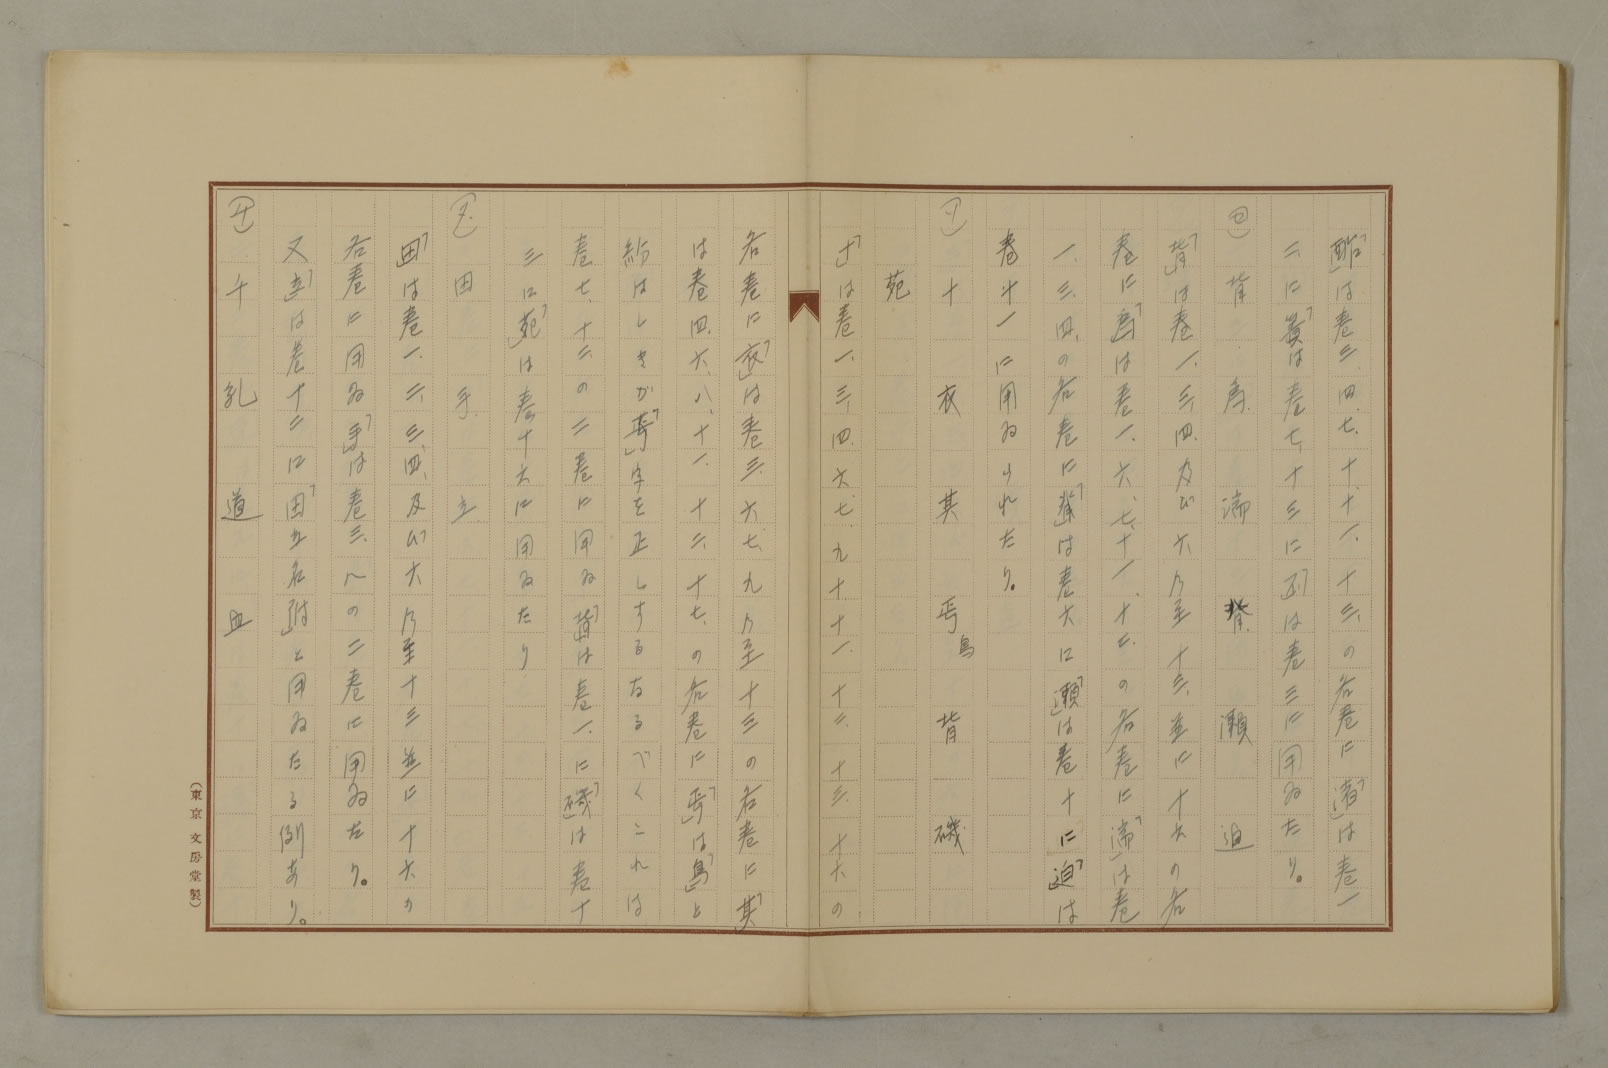 「酢」は巻三、四、七、十、十一、十三、の各巻に「渚」は巻一
二、に「簀」は巻七、十三に「」は巻三に用ゐたり。
背 為 済 脊 瀬 迫
「背」は巻一、三、四、及び六乃至十三、並に十六の各
巻に「為」は巻一、六、七、十一、十二、の各巻に「済」は巻
一、三、四、の各巻に「脊」は巻六に「瀬」は巻十に「迫」は
巻十一に用ゐられたり。
(ソ) 十 衣 其 焉 背 磯
苑
「十」は巻一、三、四、六、七、九、十、十一、十二、十三、十六の
各巻に「衣」は巻三、六、七、九乃至十三の各巻に「其」
は巻四、六、八、十一、十二、十七、の各巻に「焉」は「烏」と
紛はしきが「焉」字を正しするなるべくこれは
巻七、十二、の二巻に用ゐ「背」は巻一、に「磯」は巻十
三に「苑」は巻十六に用ゐたり
(タ) 田 手 立
「田」は巻一、二、三、四、及び六乃至十三並に十六の
各巻に用ゐ「手」は巻三、八の二巻に用ゐたり。
又「立」は巻十二に「田立名付」と用ゐたる例あり。
(チ) 千 乳 道 血
(東京 文房堂製)